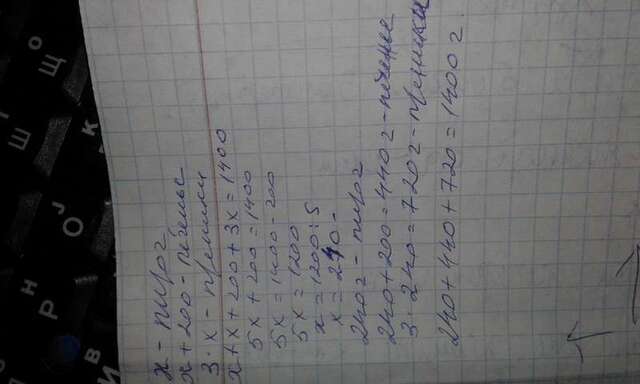 x - пирог
x + 200 - печенье
3 · x - пряники
x + x + 200 + 3x = 1400
5x + 200 = 1400
5x = 1400 - 200
5x = 1200
x = 1200 : 5
x = 240 -
240 г - пирог
240 + 200 = 440 г - печенье
3 · 240 = 720 г - пряники
240 + 440 + 720 = 1400 г
И
В
Р
Н
О
J
Ш
К
Щ
О